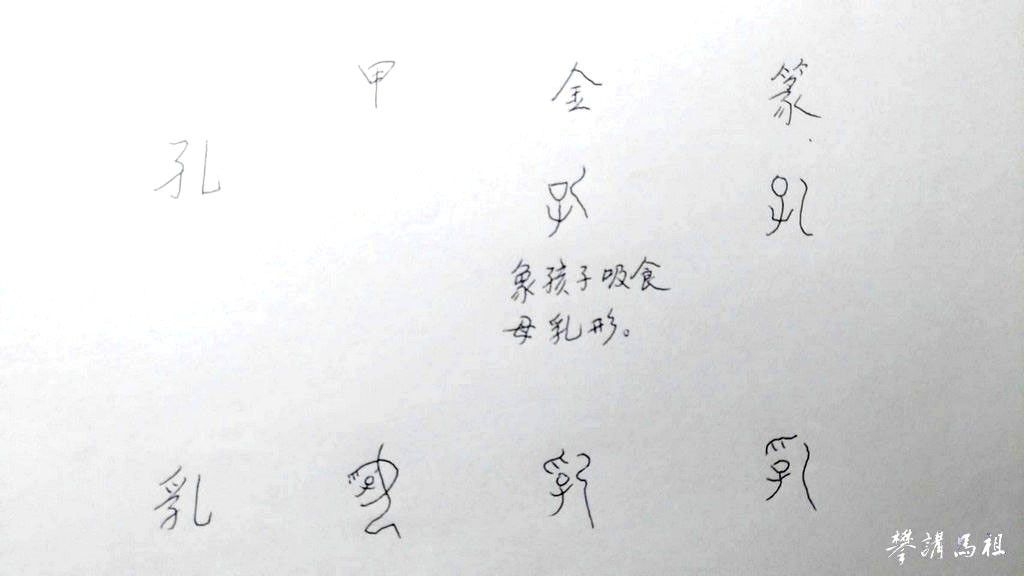 甲 金 篆
孔
象孩子吸食
母乳形。
乳
攀講馬祖